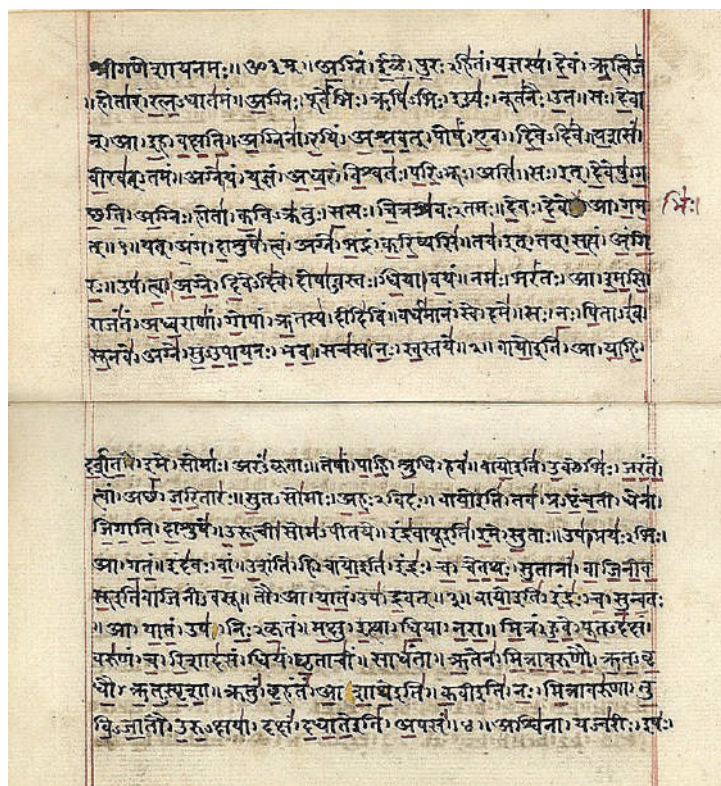 श्रीगणेशायनमः॥ ॐ३म्॥ अग्निं। ईळे। पुरःऽहितं। यज्ञस्य। देवं। ऋत्विजं
।होतारं। रत्नऽधातमं॥ अग्निः। पूर्वेभिः। ऋषिऽभिः। ईड्यः। नूतनैः। उत। सः। देवा
न्। आ। इह। वक्षति॥ अग्निना। रयिं। अश्नवत्। पोषं। एव। दिवेऽदिवे। यशसं
वीरवत्ऽतमं॥ अग्ने। यं। यज्ञं। अध्वरं। विश्वतः। परिऽभूः। असि। सः। इत्। देवेषु। ग
च्छति॥ अग्निः। होता। कविऽक्रतुः। सत्यः। चित्रश्रवःऽतमः॥ देवः। देवे। आ। गम भिः।
त्॥१॥ यत्। अंग। दाशुषे। त्वं। अग्ने। भद्रं। करिष्यसि। तव। इत्। तत्। सत्यं। अंगि
रः॥ उप। त्वा। अग्ने। दिवेऽदिवे। दोषाऽवस्तः। धिया। वयं। नमः। भरंतः। आ। इमसि
राजंतं। अध्वराणां। गोपां। ऋतस्य। दीदिविं॥ वर्धमानं। स्वे। दमे॥ सः। नः। पिताऽइव
सूनवे। अग्ने। सुऽउपायनः। भव। सचस्व। नः। स्वस्तये॥२॥ वायोइति। आ। याहि।
दर्शत। इमे। सोमाः। अरंऽकृताः॥ तेषां। पाहि। श्रुधि। हवं॥ वायोइति। उक्थेभिः। जरंते
त्वां। अच्छ। जरितारः॥ सुतऽसोमाः। अहःऽविदः॥ वायोइति। तव। प्रऽपृंचती। धेना।
जिगाति। दाशुषे॥ उरूची। सोमऽपीतये॥ इंद्रवायूइति। इमे। सुताः। उप। प्रयःऽभिः।
आ। गतं॥ इंदवः। वां। उशंति। हि। वायोइति। इंद्रः। च। चेतथः। सुतानां। वाजिनीव
सूइतिवाजिनीऽवसू॥ तौ। आ। यातं। उप। द्रवत्॥३॥ वायोइति। इंद्रः। च। सुन्वतः
॥आ। यातं। उप। निःऽकृतं॥ मक्षु। इत्था। धिया। नरा॥ मित्रं। हुवे। पूतऽदक्षं।
वरुणं। च। रिशादसं॥ धियं। घृताचीं। साधंता॥ ऋतेन। मित्रावरुणौ। ऋतऽवृ
धौ। ऋतऽस्पृशा॥ क्रतुं। बृहंतं। आशाथेइति॥ कवीइति। नः। मित्रावरुणा। तु
विऽजातौ। उरुऽक्षया॥ दक्षं। दधातेइति। अपसं॥४॥ अश्विना। यज्वरीः। इषः।